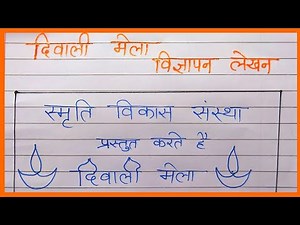 दिवाली मेला
विज्ञापन लेखन
स्मृति विकास संस्था
प्रस्तुत करते है
दिवाली मेला